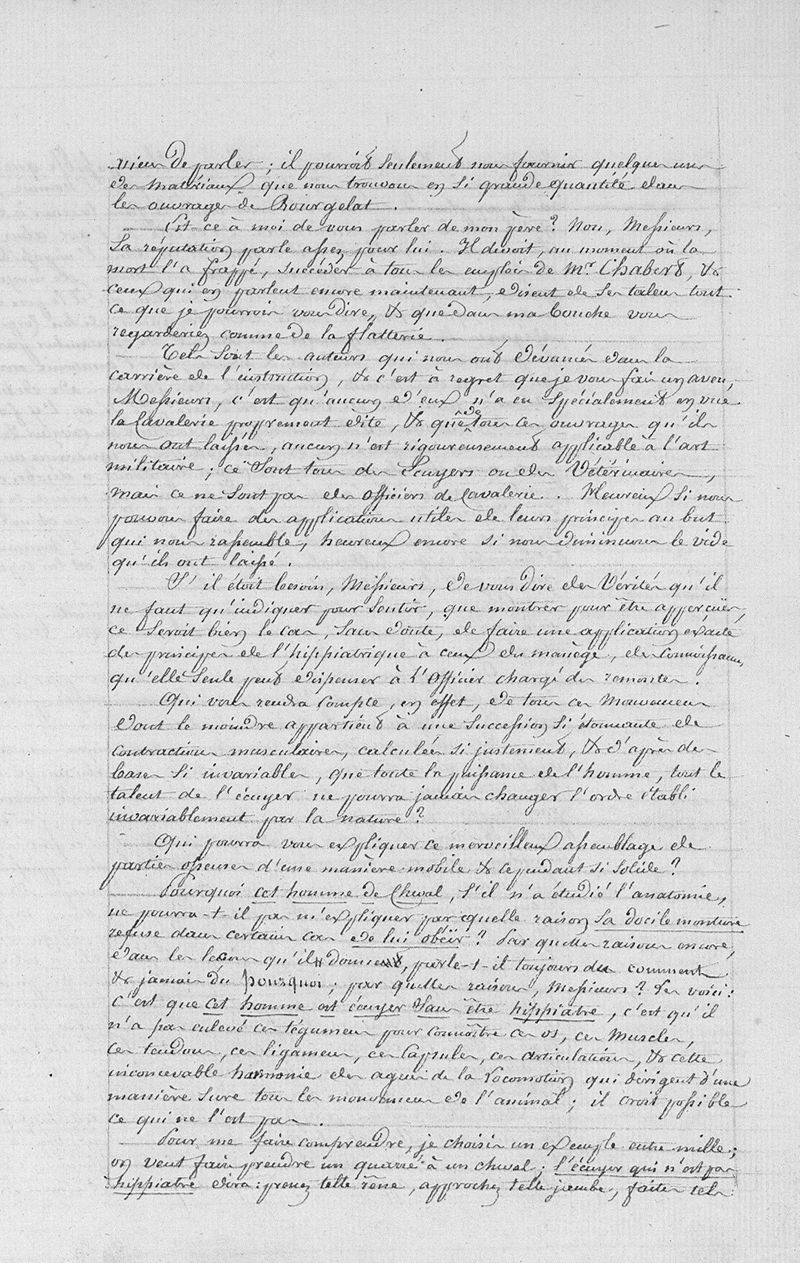 viens de parler ; il pourroit seulement nous fournir quelques uns
des matériaux que nous trouvons en si grande quantité dans
les ouvrages de Bourgelat.
Est ce à moi de vous parler de mon père ? Non, Messieurs,
Sa réputation parle assez pour lui. Il devoit, au moment où la
mort l'a frappé, succéder à tous les emplois de Mr. Chabert, &
ceux qui en parlent encore maintenant, disent de ses talens tout
ce que je pourrois vous dire, & que dans ma bouche vous
regarderiez comme de la flatterie.
Tels sont les auteurs qui nous ont dévancés dans la
carrière de l'instruction, & c'est à regret que je vous fais un aveu,
Messieurs, c'est qu'aucun d'eux n'a eu spécialement en vue
la Cavalerie proprement dite, & que de tous ces ouvrages qu'ils
nous ont laissés, aucun n'est rigoureusement applicable à l'art
militaire ; ce sont tous des Ecuyers ou des Vétérinaires,
mais ce ne sont pas des officiers de Cavalerie. Heureux si nous
pouvons faire des applications utiles de leurs principes au but
qui nous rassemble, heureux encore si nous diminuons le vide
qu'ils ont laissé.
S'il étoit besoin, Messieurs, de vous dire des Vérités qu'il
ne faut qu'indiquer pour sentir, que montrer pour être apperçues,
ce seroit bien le cas, sans doute, de faire une application exacte
des principes de l'hippiatrique à ceux du manège, des connoissances
qu'elle seule peut dispenser à l'Officier chargé des remontes.
Qui vous rendra compte, en effet, de tous ces mouvemens
dont le moindre appartient à une succession si étonnante de
contractions musculaires, calculées si justement, & d'après des
bases si invariables, que toute la puissance de l'homme, tout le
talent de l'écuyer ne pourra jamais changer l'ordre établi
invariablement par la nature ?
Qui pourra vous expliquer ce merveilleux assemblage de
parties osseuses d'une manière mobile & cependant si solide ?
Pourquoi cet homme de Cheval, s'il n'a étudié l'anatomie,
ne pourra-t-il pas m'expliquer par quelle raison sa docile monture
refuse dans certains cas de lui obéir ? Par quelles raisons encore,
dans les leçons qu'il donne, parle-t-il toujours du comment
& jamais du pourquoi ; par quelles raisons, Messieurs ? Les voici :
c'est que cet homme est écuyer sans être hippiatre, c'est qu'il
n'a pas enlevé ces tégumens pour connoître ces os, ces muscles,
ces tendons, ces ligamens, ces capsules, ces articulations, & cette
inconcevable harmonie des agens de la locomotion qui dirigent d'une
manière sure tous les mouvemens de l'animal ; il croit possible
ce qui ne l'est pas.
Pour me faire comprendre, je choisis un exemple entre mille ;
on veut faire prendre un quarré à un cheval ; l'écuyer qui n'est pas
hippiatre dira : prenez telle rêne, approchez telle jambe, faites tels